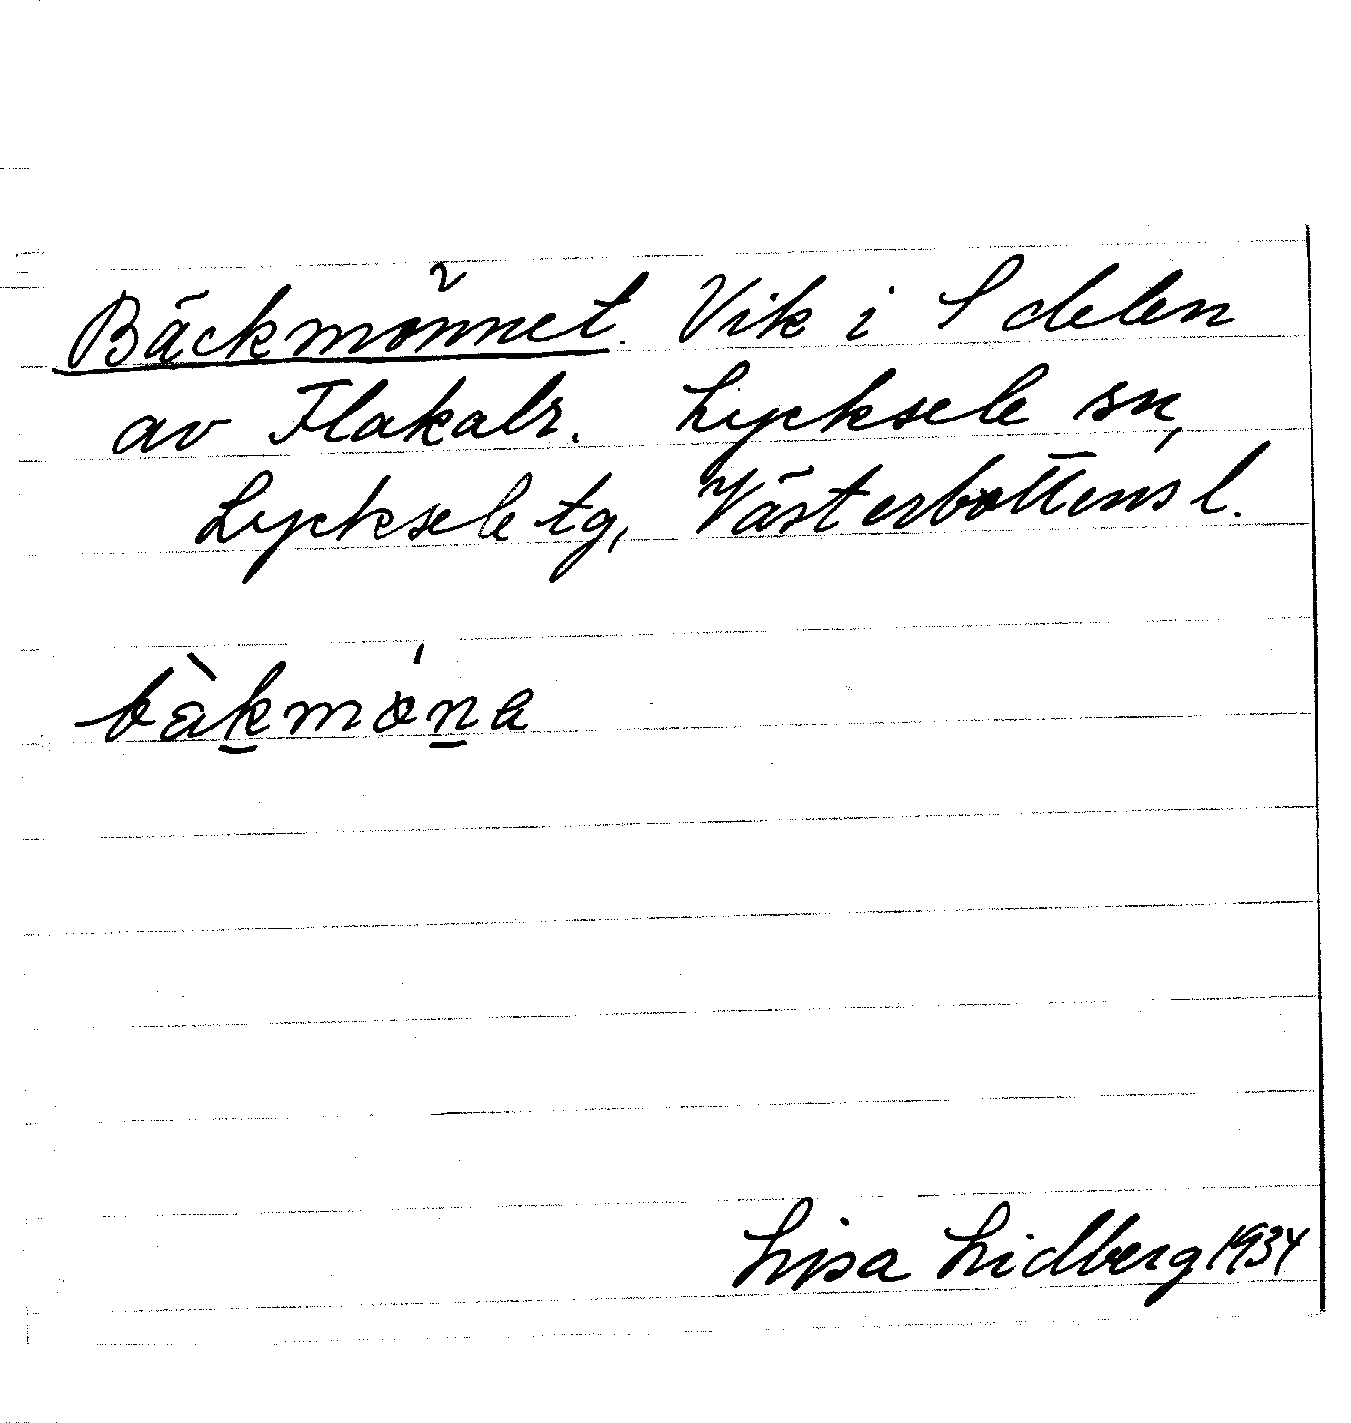 Bäckmönnet. Vik i S delen
av Flakatr. Lycksele sn,
Lycksele tg, Västerbottens l.
bàkmǿna
Lisa Lidberg 1934